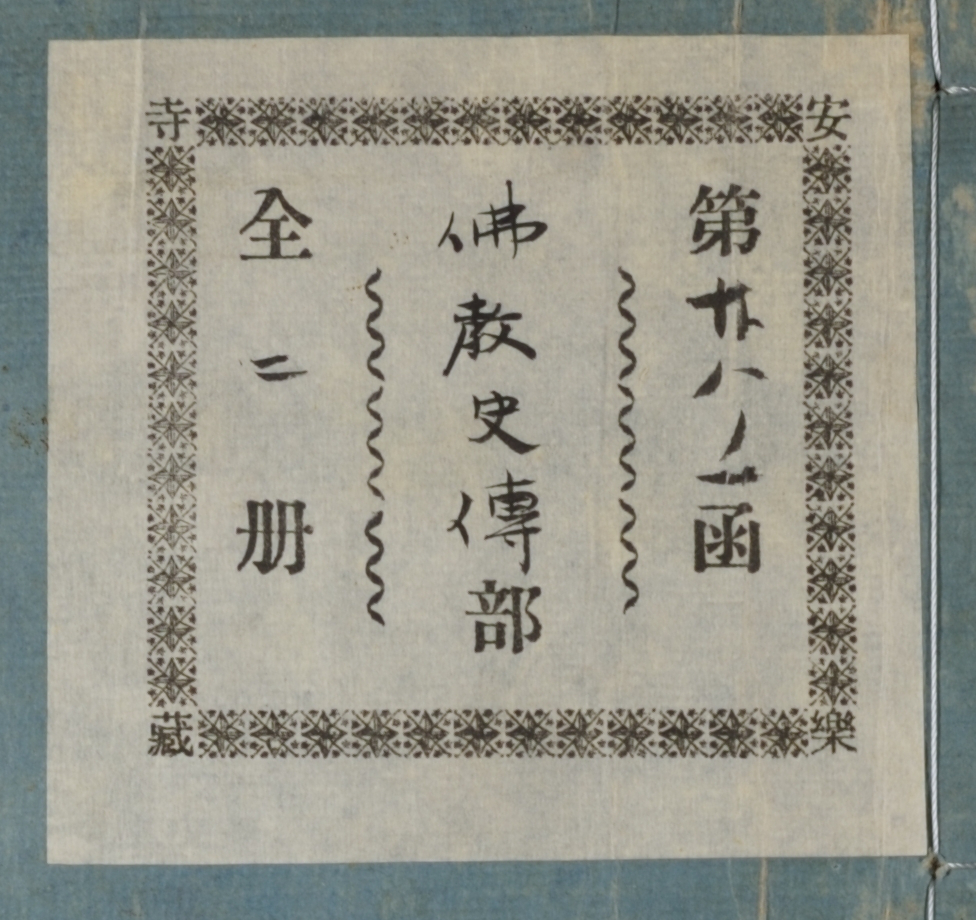 安樂寺藏
第廿八ノ一函
佛教史傳部
全二册